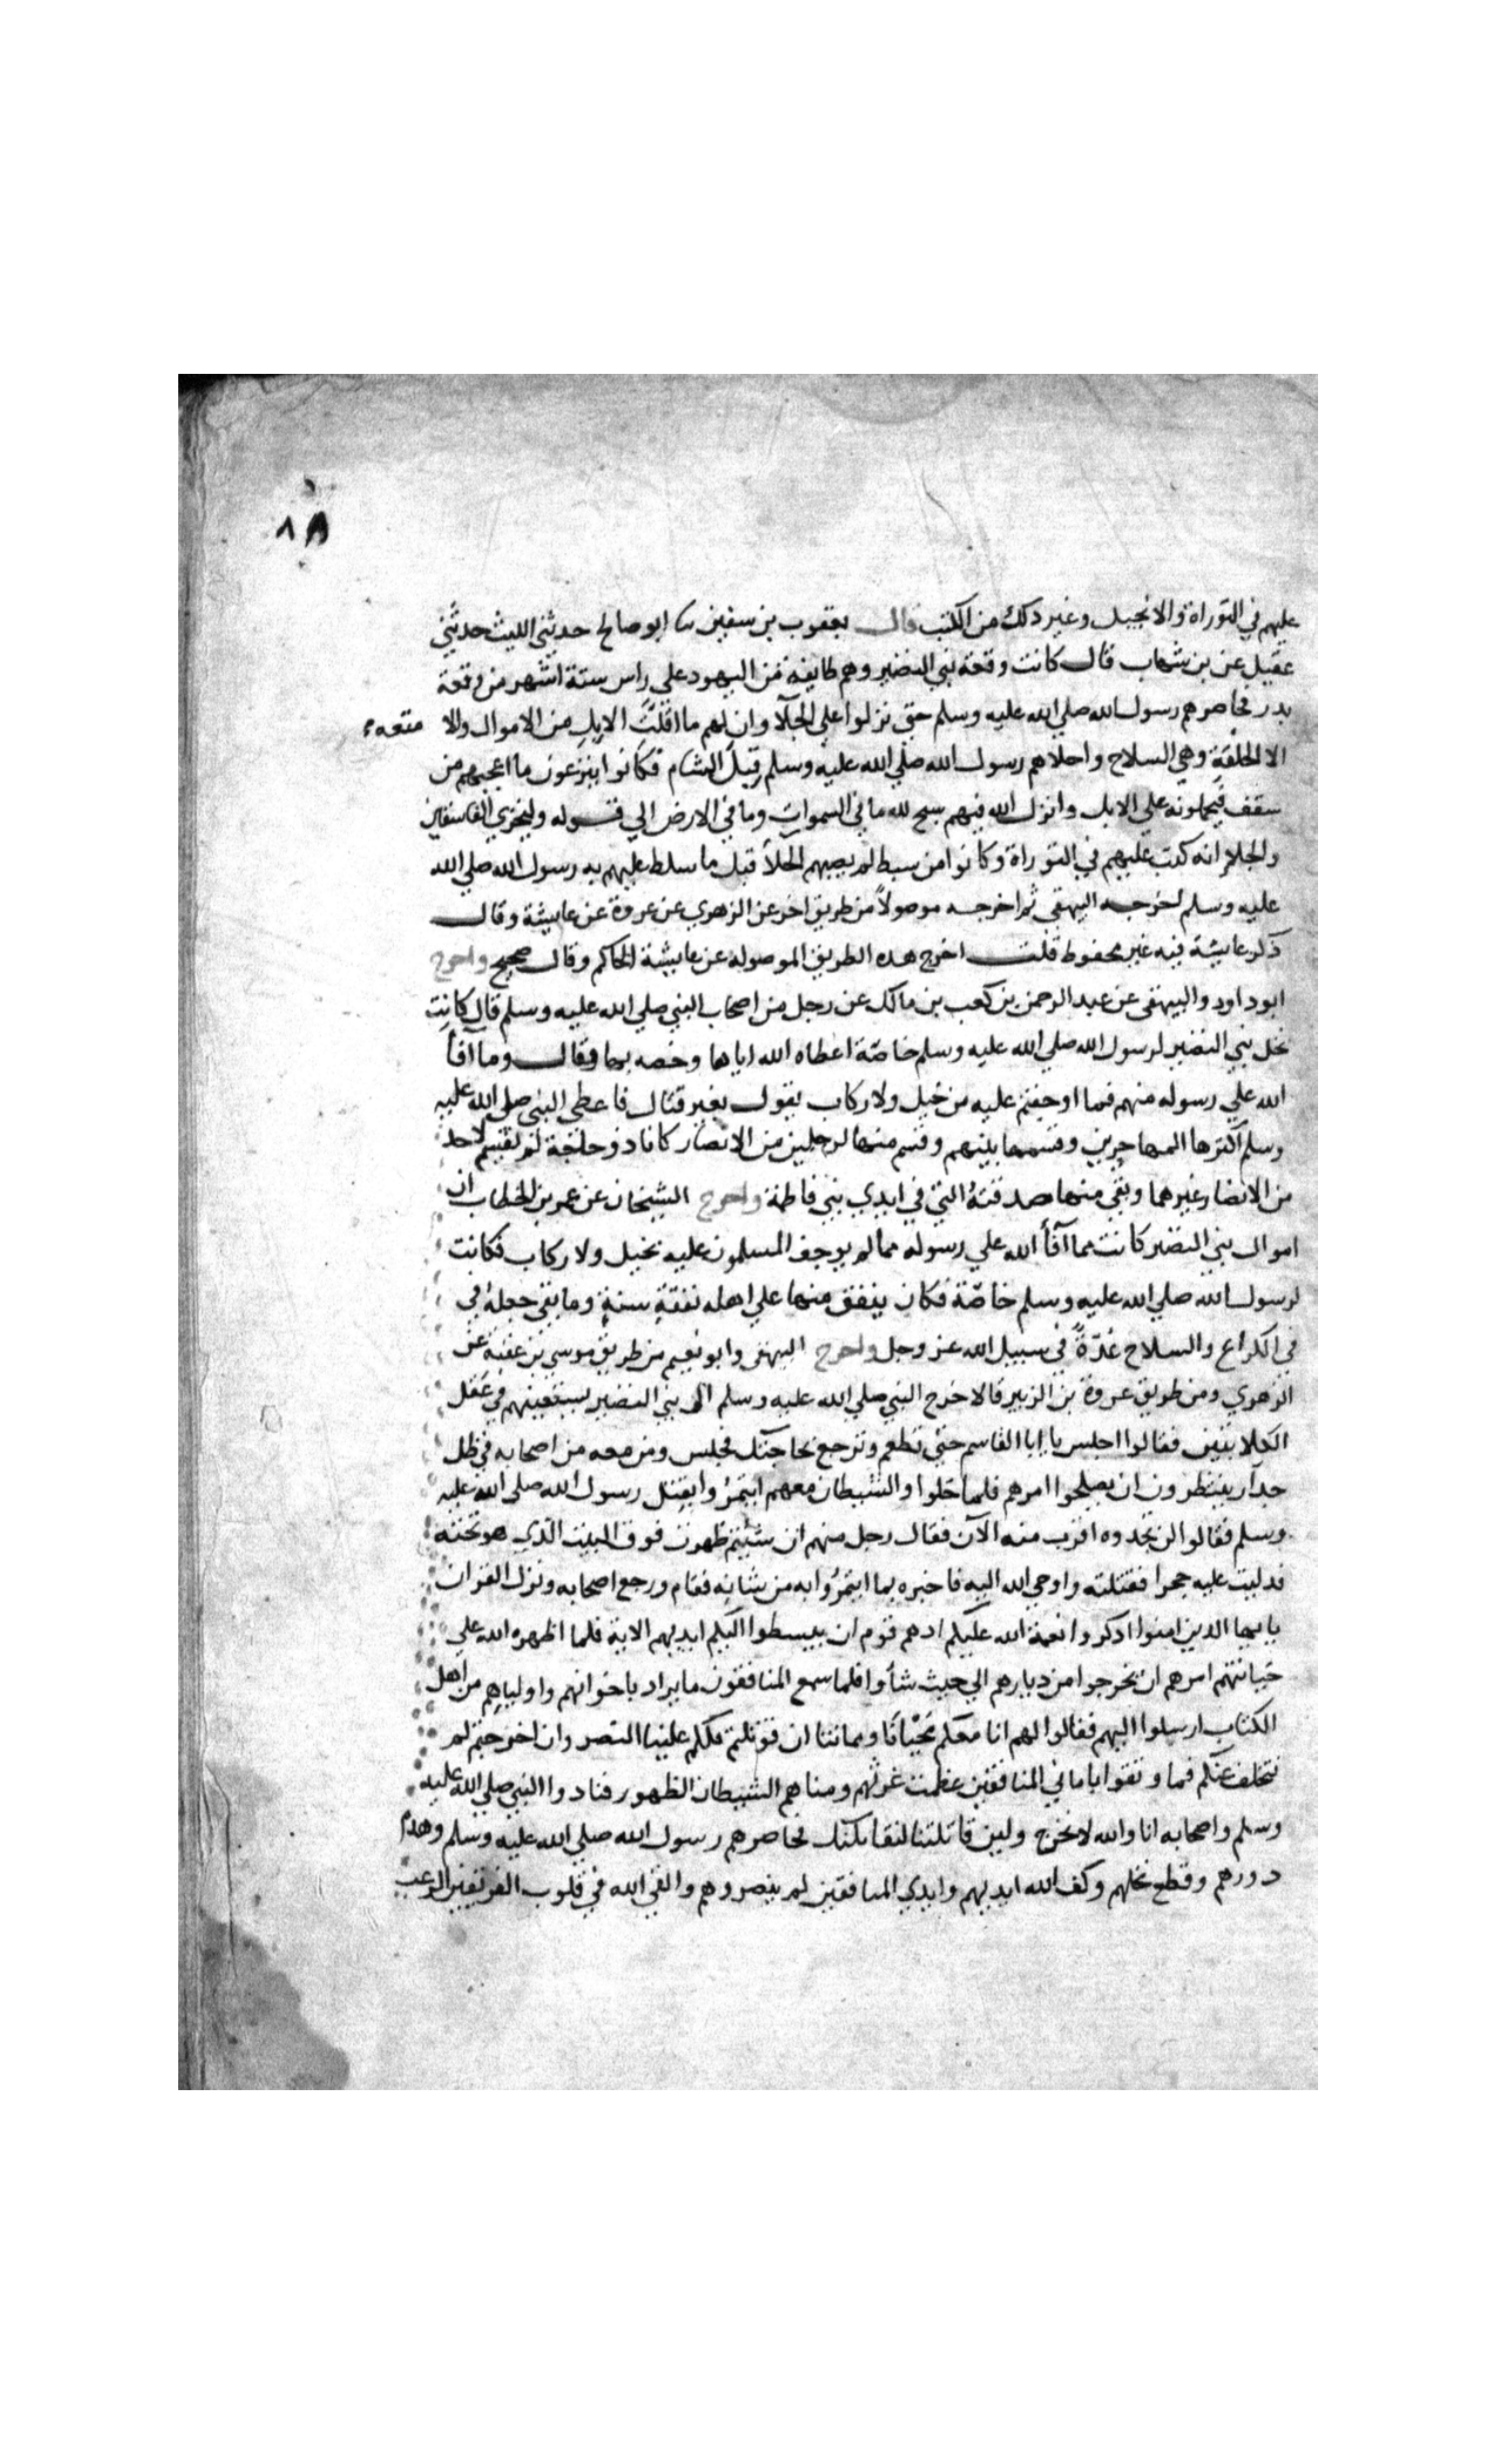 ٨٨
عليهم في التوراة والانجيل وغير ذلك من الكتب قال يعقوب بن سفين ثنا ابو صالح حدثني الليث حدثني
عقيل عن بن شهاب قال كانت وقعة بني النضير وهم طايفة من اليهود علي راس ستة اشهر من وقعة
بدر فحاصرهم رسول الله صلي الله عليه وسلم حتي نزلوا علي الجلآ وان لهم ما اقلت الابل من الاموال والا متعه
الا الحلقة وهي السلاح واجلاهم رسول الله صلي الله عليه وسلم قبل الشام فكانوا ينزعون ما اعجبهم من
سقف فيحملونه علي الابل وانزل الله فيهم سبح لله ما في السموات وما في الارض الي قوله وليخزي الفاسقين
والجلا انه كتب عليهم في التوراة وكانوا من سبط لم يصبهم الجلآ قبل ما سلط عليهم به رسول الله صلي الله
عليه وسلم اخرجه البيهقي ثم اخرجه موصولاً من طريق اخر عن الزهري عن عروة عن عايشة وقال
ذكر عايشة فيه غير محفوظ قلت اخرج هذه الطريق الموصوله عن عايشة الحاكم وقال صحيح واخرج
ابو داود والبيهقى عن عبد الرحمن بن كعب بن مالك عن رجل من اصحاب النبي صلي الله عليه وسلم قال كانت
نخل بني النضير لرسول الله صلي الله عليه وسلم خاصّة اعطاه الله اياها وخصه بها فقال وما آفأ
الله علي رسوله منهم فما اوجفتم عليه من خيل ولا ركاب يقول بغير قتال فاعطى النبي صلي الله عليه
وسلم اكثرها المهاجرين وقسمها بينهم وقسم منها لرجلين من الانصار كانا ذوحاجة لم يقسم لاحد
من الانصار غيرهما وبقي منها صدقته التي في ايدي بني فاطمة واخرج الشيخان عن عمر بن الخطاب ان
اموال بني النضير كانت مما آفأ الله علي رسوله مما لم يوجف المسلمون عليه بخيل ولا ركاب فكانت
لرسول الله صلي الله عليه وسلم خاصّة فكان ينفق منها علي اهله نفقة سنة وما بقي جعله في
في الكراع والسلاح عُدّةً في سبيل الله عز وجل واخرج البيهقى وابو نعيم من طريق موسي بن عقبة عن
الزهري ومن طريق عروة بن الزبير قالا خرج النبي صلي الله عليه وسلم الى بني النضير يستعينهم في عقل
الكلابيين فقالوا اجلس يا ابا القاسم حتي تطعم وترجع بحاجتك فجلس ومن معه من اصحابه في ظل
جدار ينتظرون ان يصلحوا امرهم فلما خلوا والشيطان معهم ايتمرُوا بقتل رسول الله صلي الله عليه
وسلم فقالوا لن تجدوه اقرب منه الآن فقال رجل منهم ان شيتم ظهرت فوق البيت الذي هو تحته
فدليت عليه حجرا فقتلته واوحي الله اليه فاخبره بما ايتمرُوا به من شانه فقام ورجع اصحابه ونزل القران
يا يها الدين امنوا ادكروا نعمة الله عليكم اد هم قوم ان يبسطوا اليكم ايديهم الاية فلما اظهره الله علي
خيانتهم امرهم ان يخرجوا من ديارهم الي حيث شأوا فلما سمع المنافقون ما يراد باخوانهم واوليايهم من اهل
الكتاب ارسلوا اليهم فقالوا لهم انا معكم مَحْيَانَا ومماتنا ان قوتلتم فلكم علينا النصر وان اخرجتم لم
نتخلف عنكم فما وثقوا باماني المنافقين عظمت غرتهم ومناهم الشيطان الظهور فنادوا النبي صلي الله عليه
وسلم واصحابه انا والله لا نخرج ولين قاتلتنا لنقاتلنك فحاصرهم رسول الله صلي الله عليه وسلم وهدم
دورهم وقطع نخلهم وكف الله ايديهم وايدي المنافقين لم ينصروهم والقي الله في قلوب الفريقين الرعب